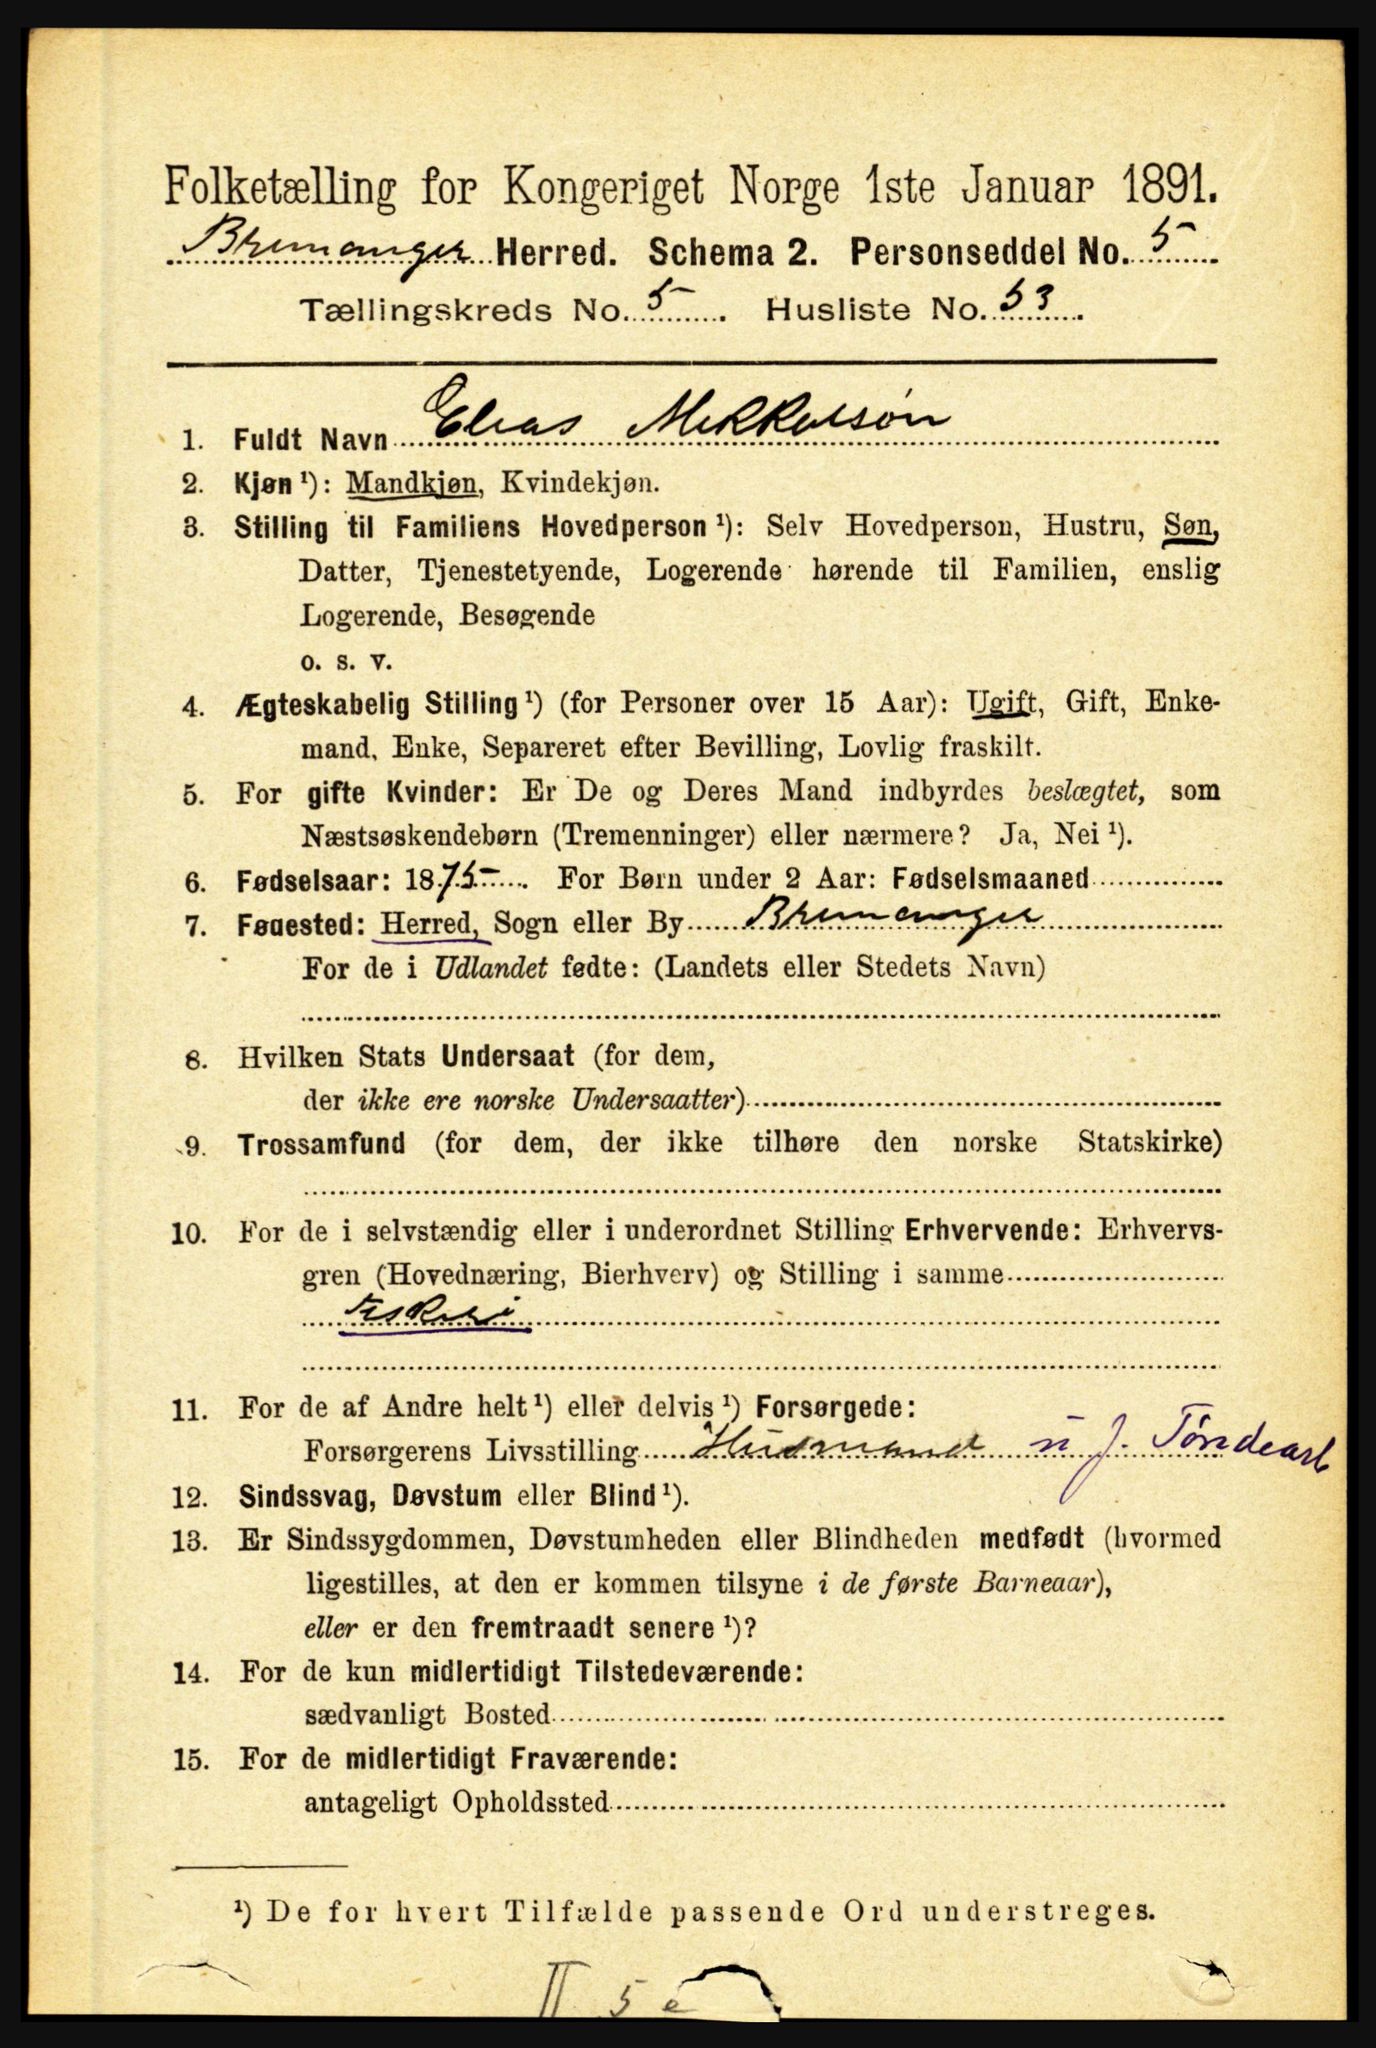 Folketælling for Kongeriget Norge 1ste Januar 1891.
Bremanger Herred. Schema 2. Personseddel No. 5
Tællingskreds No. 5. Husliste No. 53.
1. Fuldt Navn Elias Mikkelsøn
2. Kjøn ¹): Mandkjøn, Kvindekjøn.
3. Stilling til Familiens Hovedperson ¹): Selv Hovedperson, Hustru, Søn,
Datter, Tjenestetyende, Logerende hørende til Familien, enslig
Logerende, Besøgende
o. s. v.
4. Ægteskabelig Stilling ¹) (for Personer over 15 Aar): Ugift, Gift, Enke-
mand, Enke, Separeret efter Bevilling, Lovlig fraskilt.
5. For gifte Kvinder: Er De og Deres Mand indbyrdes beslægtet, som
Næstsøskendebørn (Tremenninger) eller nærmere? Ja, Nei ¹).
6. Fødselsaar: 1875. For Børn under 2 Aar: Fødselsmaaned
7. Fødested: Herred, Sogn eller By Bremanger
For de i Udlandet fødte: (Landets eller Stedets Navn)
8. Hvilken Stats Undersaat (for dem,
der ikke ere norske Undersaatter)
9. Trossamfund (for dem, der ikke tilhøre den norske Statskirke)
10. For de i selvstændig eller i underordnet Stilling Erhvervende: Erhvervs-
gren (Hovednæring, Bierhverv) og Stilling i samme
Fiskeri
11. For de af Andre helt ¹) eller delvis ¹) Forsørgede:
Forsørgerens Livsstilling Husmand u J. Tøndearb
12. Sindssvag, Døvstum eller Blind ¹).
13. Er Sindssygdommen, Døvstumheden eller Blindheden medfødt (hvormed
ligestilles, at den er kommen tilsyne i de første Barneaar),
eller er den fremtraadt senere ¹)?
14. For de kun midlertidigt Tilstedeværende:
sædvanligt Bosted
15. For de midlertidigt Fraværende:
antageligt Opholdssted
¹) De for hvert Tilfælde passende Ord understreges.
II 5 e